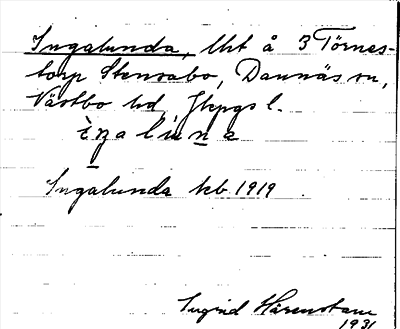 Ingalunda, lht å 3 Törnes-
torp Stensabo, Dannäs sn,
Västbo hd, Jkpgs l.
ìŋaluna
Ingalunda kb 1919
Ingrid Härenstam
1931